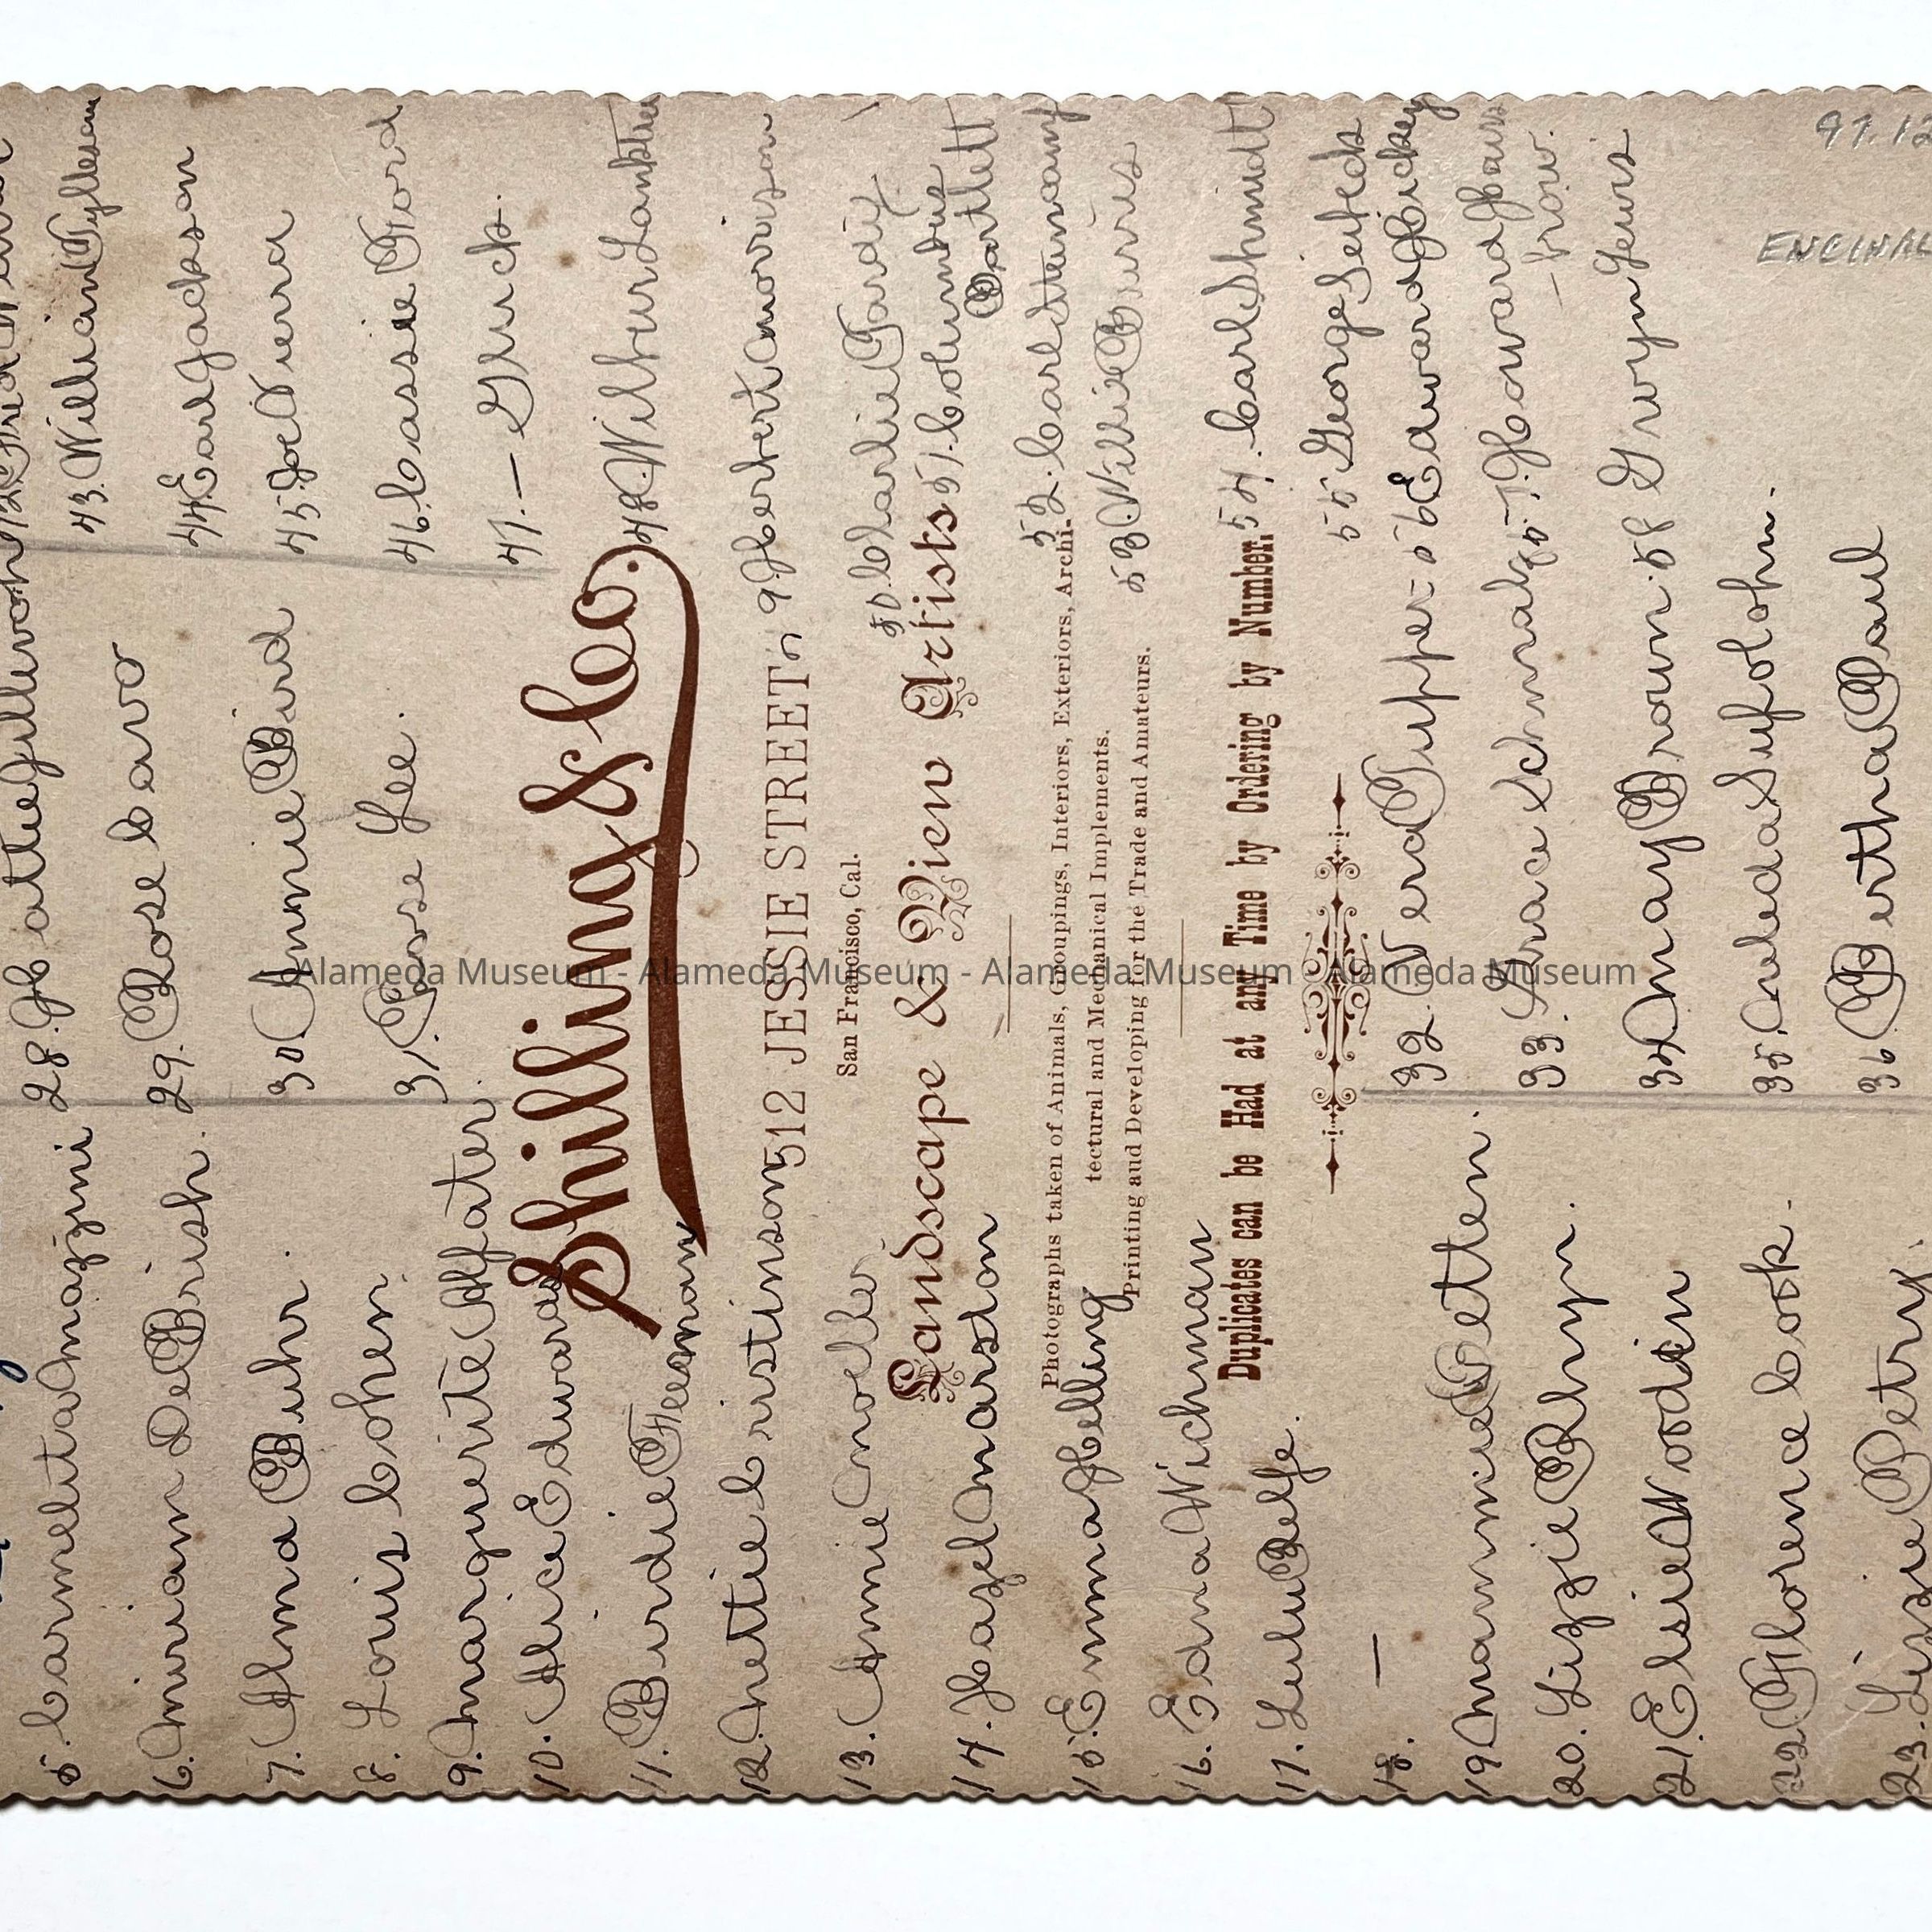 5. Carmelita Mazzini
6. Miriam DelBrish.
7. Alma Buhr.
8. Louis Cohen.
9. Marguerite Affater.
10. Alice Edwards
11. Birdie Freeman
12. Nettie Cristinson
13. Annie Moeller
14. Hazel Marston
15. Emma Helling
16. Edna Wichman
17. Lulu Belfe.
18. —
19 Mammie Petten.
20. Lizzie Rhyn.
21. Elsie Woodin
22 Florence Cook.
23. Lizzie Petry.
28. Hattie
29. Rose Cavo
30 Annie Bird
31. Rose Lee.
32. Vera Tupper
33. Grace Schmalz
34 May Brown
35. Aneleda Sufolohn.
36 Bertha Paul
43. William
44 Earl Jackson
45 Joe Vierra
46. Cassie Ford
47. — Gluck.
48 Wilbur
9 Herbert Morrison
50. Charlie
51. Columbus
Bartlett
52. Carl
53 Willie Burris
54. Carl Shmidt
55 George
56 Edward Hickey
57. Howard
brow.
58 Gwyn Lewis
Shilling & Co.
512 JESSIE STREET
San Francisco, Cal.
Landscape & View Artists
Photographs taken of Animals, Groupings, Interiors, Exteriors, Archi-
tectural and Mechanical Implements.
Printing aud Developing for the Trade and Amateurs.
Duplicates can be Had at any Time by Ordering by Number.
97.12
ENCINAL
Alameda Museum - Alameda Museum - Alameda Museum - Alameda Museum